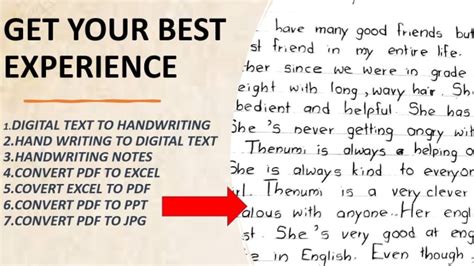 GET YOUR BEST
EXPERIENCE
1.DIGITAL TEXT TO HANDWRITING
2.HAND WRITING TO DIGITAL TEXT
3.HANDWRITING NOTES
4.CONVERT PDF TO EXCEL
5.COVERT EXCEL TO PDF
6.CONVERT PDF TO PPT
7.CONVERT PDF TO JPG
have many good friends but
st friend in my entire life.
her since we were in grade
eight with long, wavy hair. She
bedient and helpful. She has
She's never getting angry wit
. Thenumi is always a helping
She is always kind to everyon
rl. Thenumi is a very clever
alous with anyone. Her eng
st. She's very good at eng
e in English. Even though